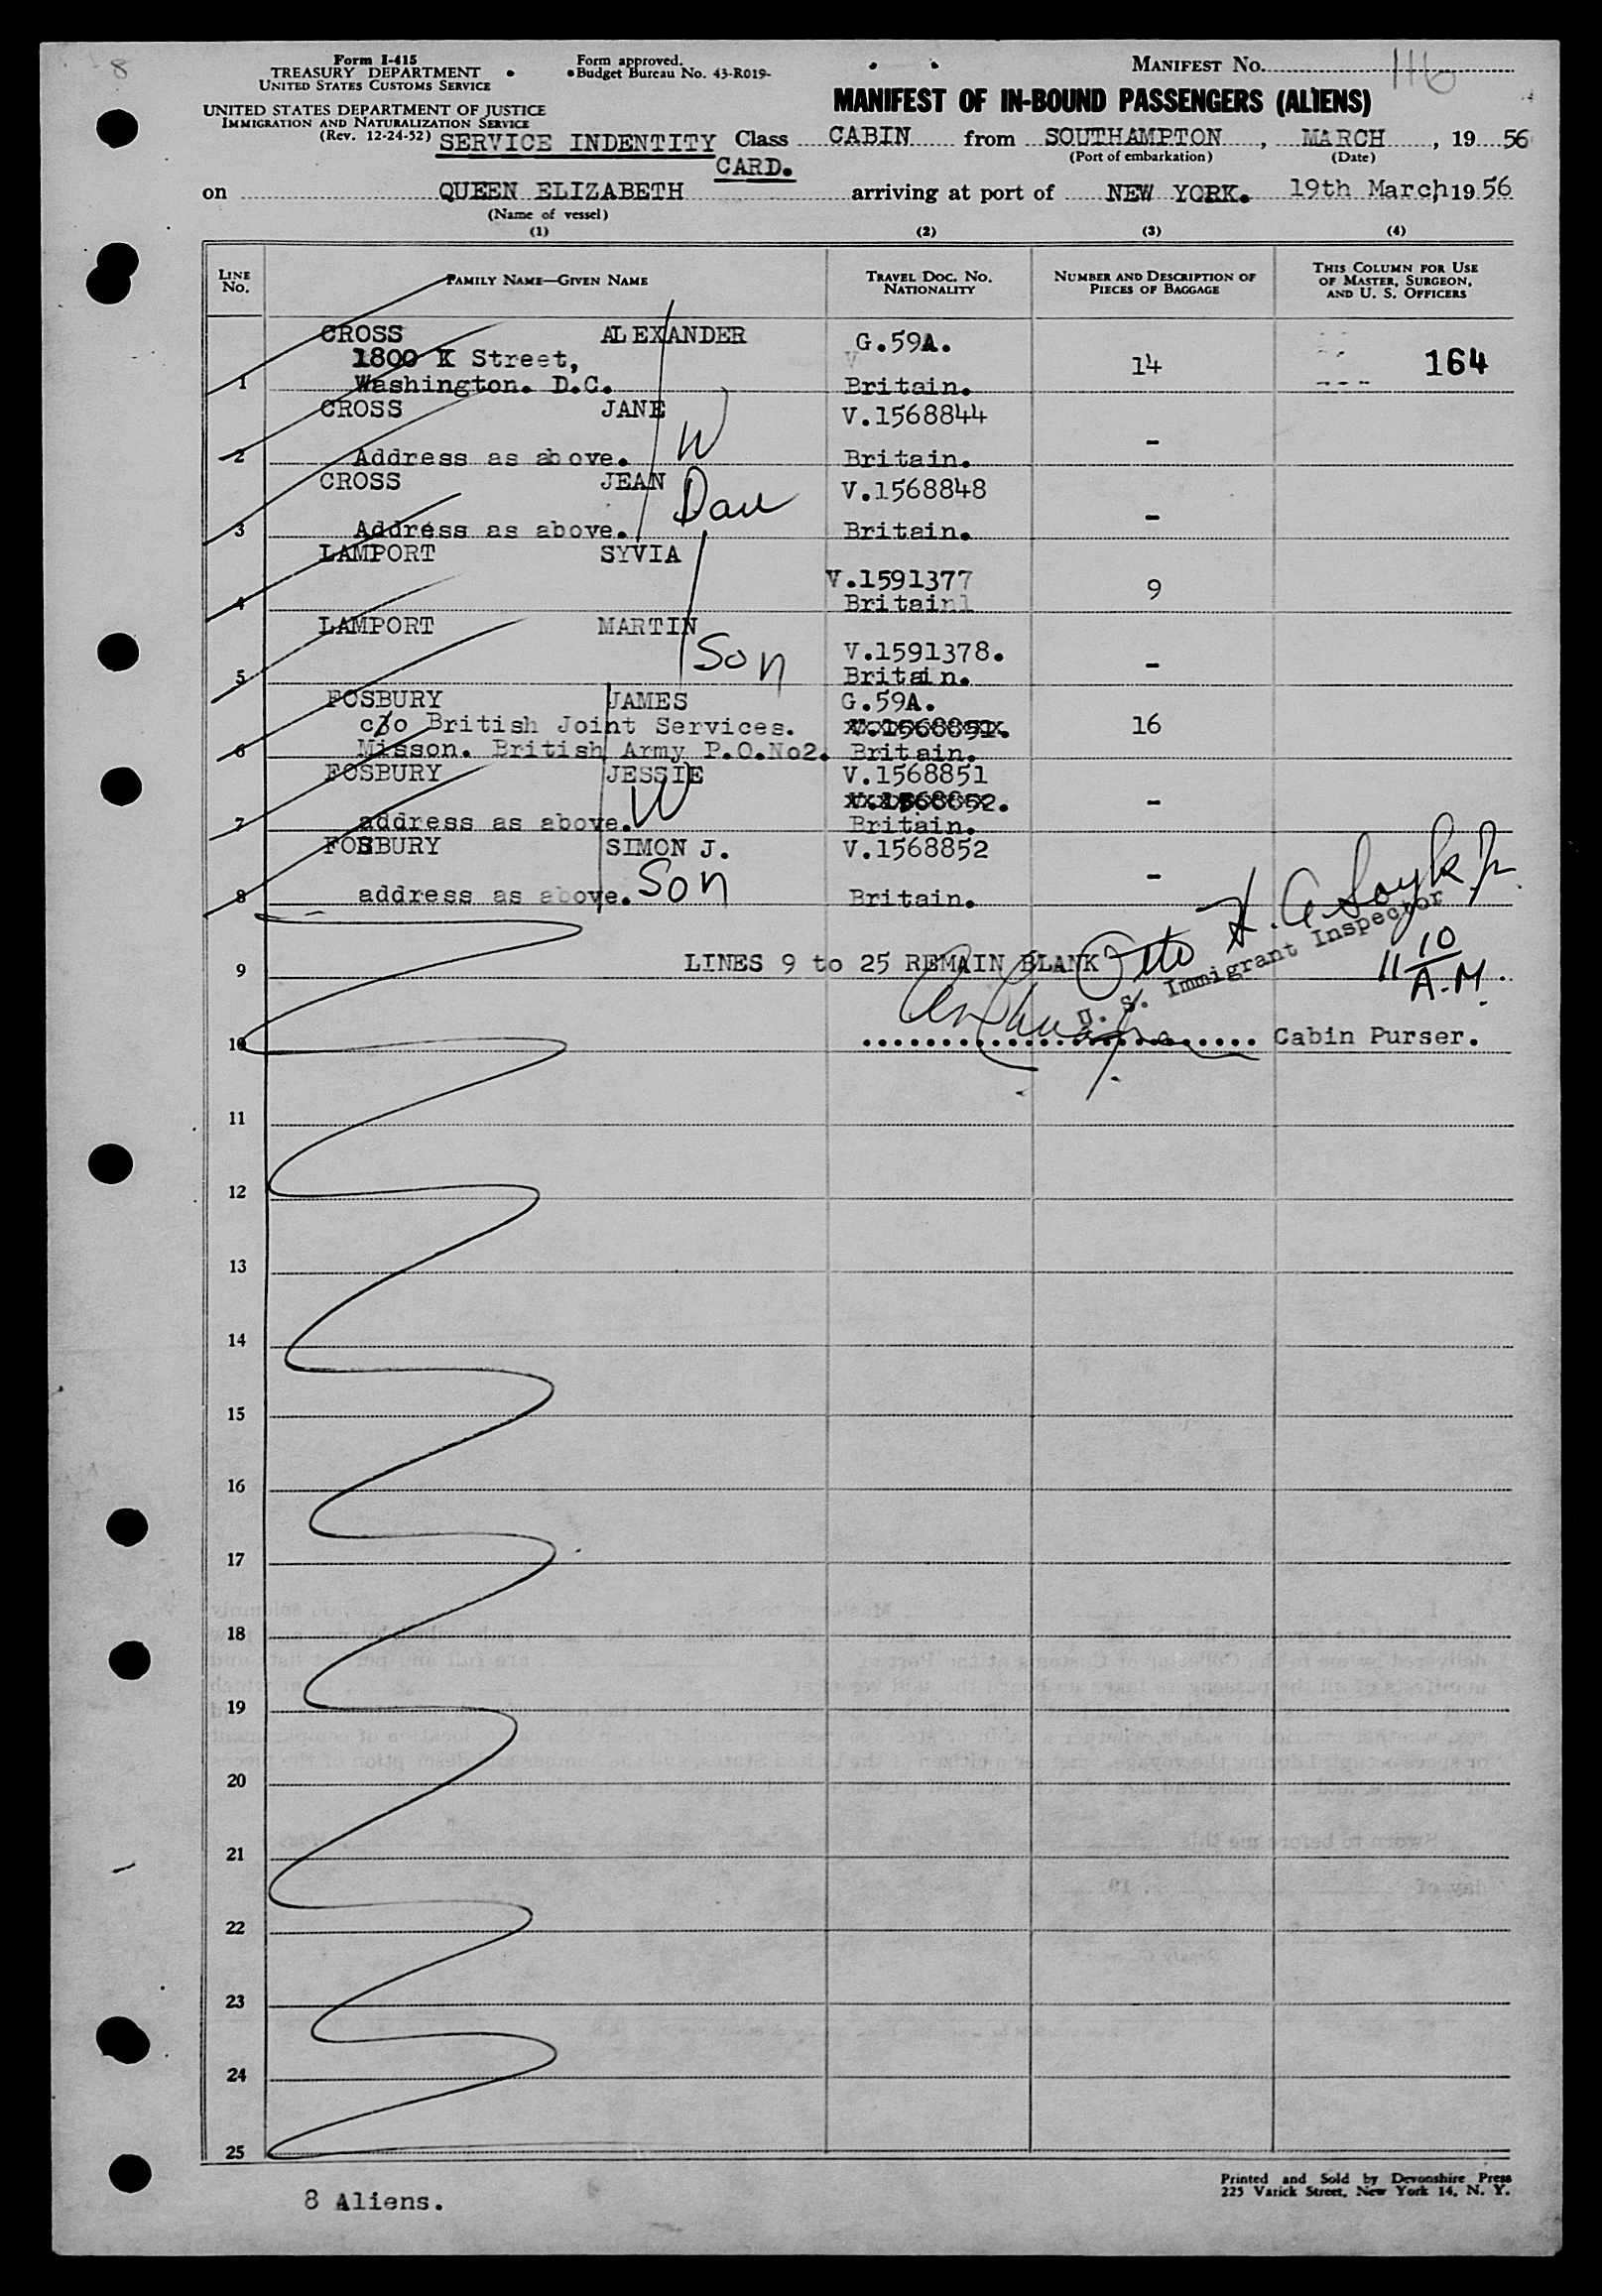 8
Form I-415
TREASURY DEPARTMENT
UNITED STATES CUSTOMS SERVICE
UNITED STATES DEPARTMENT OF JUSTICE
IMMIGRATION AND NATURALIZATION SERVICE
(Rev. 12-24-52)
Form approved.
Budget Bureau No. 43-R019-
MANIFEST No. 116
MANIFEST OF IN-BOUND PASSENGERS (ALIENS)
SERVICE INDENTITY CARD. Class CABIN from SOUTHAMPTON, MARCH, 19 56
(Port of embarkation) (Date)
on QUEEN ELIZABETH arriving at port of NEW YORK. 19th March, 19 56
(Name of vessel)
(1) (2) (3) (4)
LINE No. FAMILY NAME—GIVEN NAME TRAVEL DOC. NO. NATIONALITY NUMBER AND DESCRIPTION OF PIECES OF BAGGAGE THIS COLUMN FOR USE OF MASTER, SURGEON, AND U. S. OFFICERS
CROSS ALEXANDER G.59A.
1800 K Street, 14 164
1 Washington. D.C. Britain.
CROSS JANE V.1568844
W -
2 Address as above. Britain.
CROSS JEAN V.1568848
Dau -
3 Address as above. Britain.
LAMPORT SYVIA
V.1591377 9
4 Britain
LAMPORT MARTIN
Son V.1591378. -
5 Britain.
FOSBURY JAMES G.59A.
c/o British Joint Services. V.1568851. 16
6 Misson. British Army P.O.No2. Britain.
FOSBURY JESSIE V.1568851
W V.1568852. -
7 address as above. Britain.
FOSBURY SIMON J. V.1568852
Son -
8 address as above. Britain.
Otto
U. S. Immigrant Inspector
11 10 A.M.
9 LINES 9 to 25 REMAIN BLANK
10 Cabin Purser.
11
12
13
14
15
16
17
18
19
20
21
22
23
24
25
8 Aliens.
Printed and Sold by Devonshire Press
225 Varick Street, New York 14, N. Y.